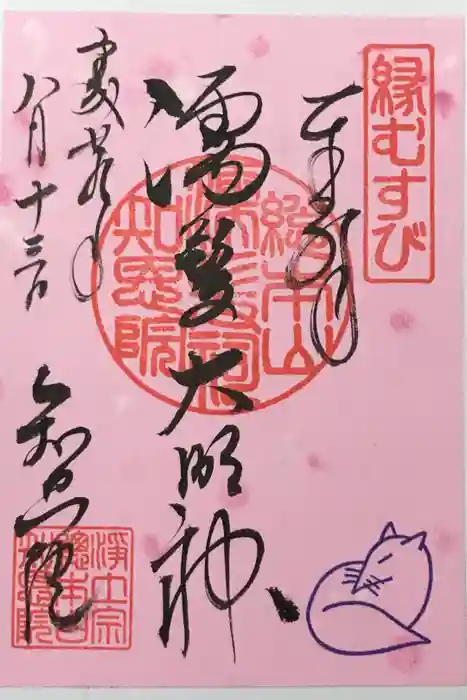 縁むすび
奉拝
濡髪大明神
八月十三日
知恩院
総本山
濡髪祠
知恩院
浄土宗
總本山
知恩院